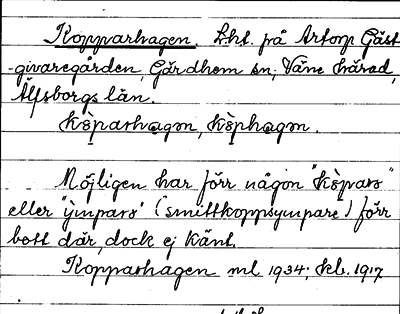 Kopparhagen. Lht. på Artorp Gäst
-givaregården, Gärdhem sn; Väne härad,
Älfsborgs län.
kòparhagən, kòphagən.
Möjligen har förr någon "kòpars"
eller "ympars" (smittkoppsympare) förr
bott där, dock ej känt.
Kopparhagen ml 1934; kb. 1917